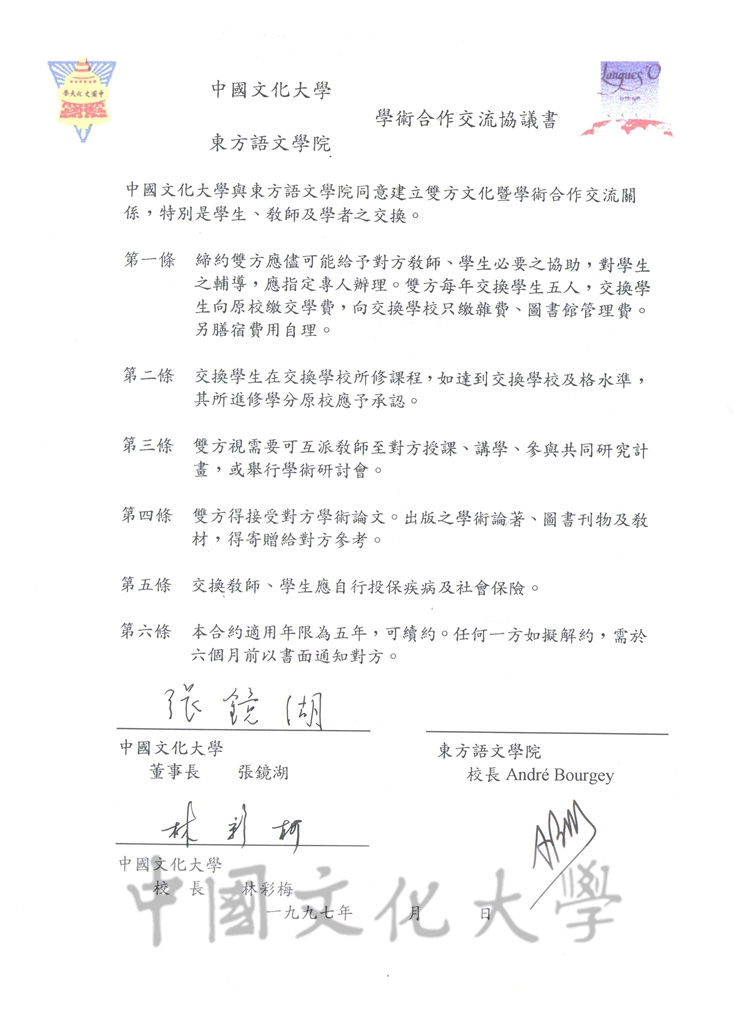 中國文化大學
學術合作交流協議書
東方語文學院
中國文化大學
Langues'O
中國文化大學與東方語文學院同意建立雙方文化暨學術合作交流關
係，特別是學生、教師及學者之交換。
第一條 締約雙方應儘可能給予對方教師、學生必要之協助，對學生
之輔導，應指定專人辦理。雙方每年交換學生五人，交換學
生向原校繳交學費，向交換學校只繳雜費、圖書館管理費。
另膳宿費用自理。
第二條 交換學生在交換學校所修課程，如達到交換學校及格水準，
其所進修學分原校應予承認。
第三條 雙方視需要可互派教師至對方授課、講學、參與共同研究計
畫，或舉行學術研討會。
第四條 雙方得接受對方學術論文。出版之學術論著、圖書刊物及教
材，得寄贈給對方參考。
第五條 交換教師、學生應自行投保疾病及社會保險。
第六條 本合約適用年限為五年，可續約。任何一方如擬解約，需於
六個月前以書面通知對方。
張鏡湖
中國文化大學
董事長 張鏡湖
東方語文學院
校長 André Bourgey
林彩梅
中國文化大學
校 長 林彩梅
一九九七年 月 日
中國文化大學